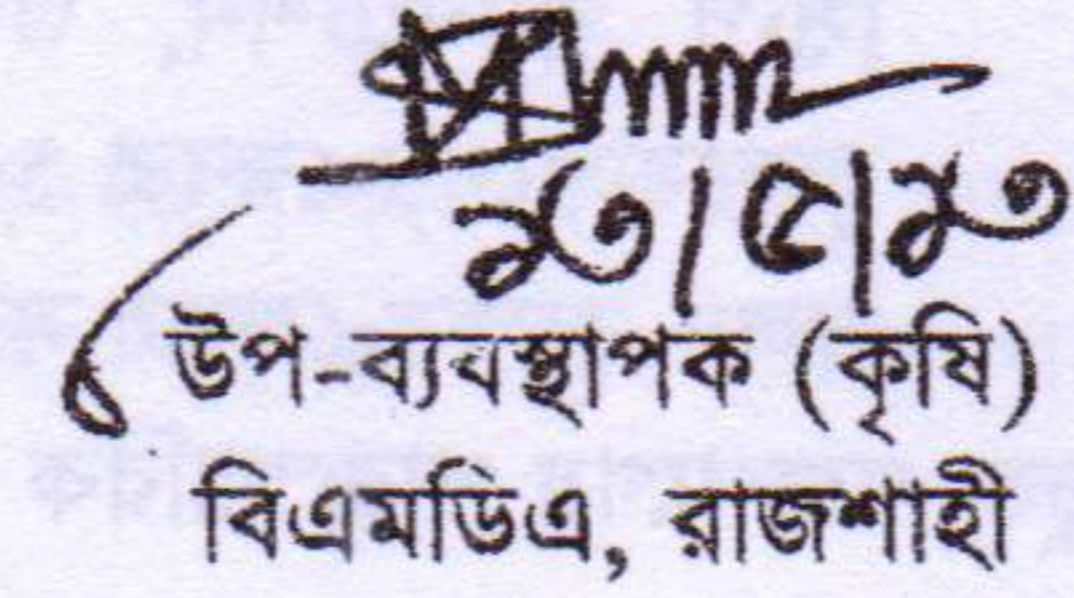 ২৩|৫|২৩
উপ-ব্যবস্থাপক (কৃষি)
বিএমডিএ, রাজশাহী